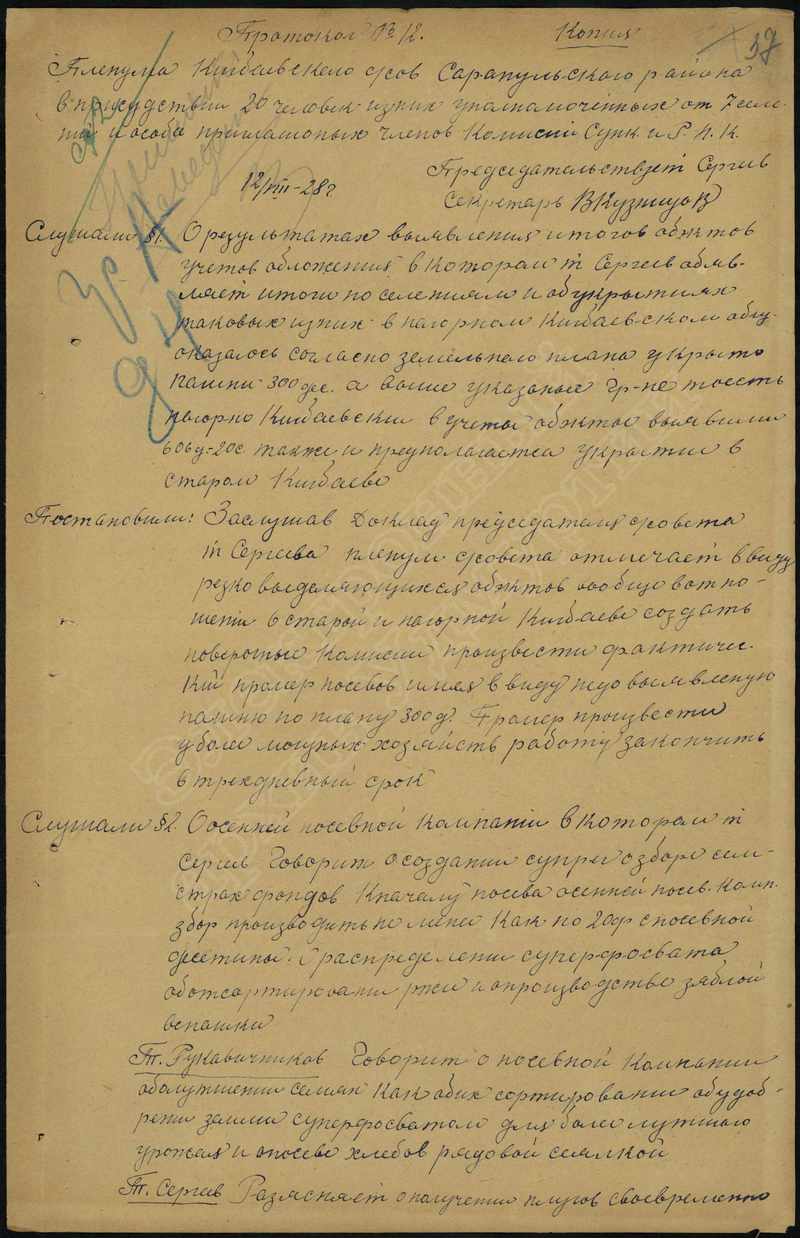 Протокол № 12. Копия 37
Пленума Кигбаевского с/сов Сарапульского района
в присудствии 20 человек из них уполномоченных от 7 селе-
ний и особо приглашоных членов Комиссий Сунк и Р.Н.К.
Председательствует Сергеев
12/VIII-28 г Секретарь В Кузнецов
Слушали §1. О результатах выявления итогов обжтов
учетов обложения в котором т Сергеев объяв-
ляет итоги по селениям и об укрытиях
таковых из них в нагорном Кигбаевском общ.
оказалось согласно земельного плана укрыто
пашни 300 дес. а выше указаные гр-не тоесть
нагорно Кигбаевские в учеты обжты выявили
также и предполагается укрытие в
старом Кигбаеве
Постановили: Заслушав Доклад председателя с/совета
т Сергеева пленум с/совета отмечает ввиду
резко выделяющихся обжтов вообще в отно-
шении в старой и нагорной Кигбаеве создать
поверочные Комиссии произвести фактичес-
кий промер посевов имея ввиду недовыявленую
пашню по плану 300 д. Промер произвести
у более мощных хозяйств работу закончить
в трехдневный срок
Слушали §2. О осенней посевной Кампании в котором т
Сергеев Говорит о создании супряг о зборе сем-
страх фондов к началу посева осенней посев. Камп.
збор производить не менее как по 20 ф с посевной
десетины. О распределении суперфосвата
об отсортировании ржи и о производстве зяблой
вспашки
Т. Рукавичников Говорит о посевной Кампании
об улутшении семян как о их сортировании об удоб-
рении земли суперфосватом для более лутшего
урожая и о посеве хлебов рядовой сеялкой
Т. Сергеев Разясняет о получении плугов своевременно